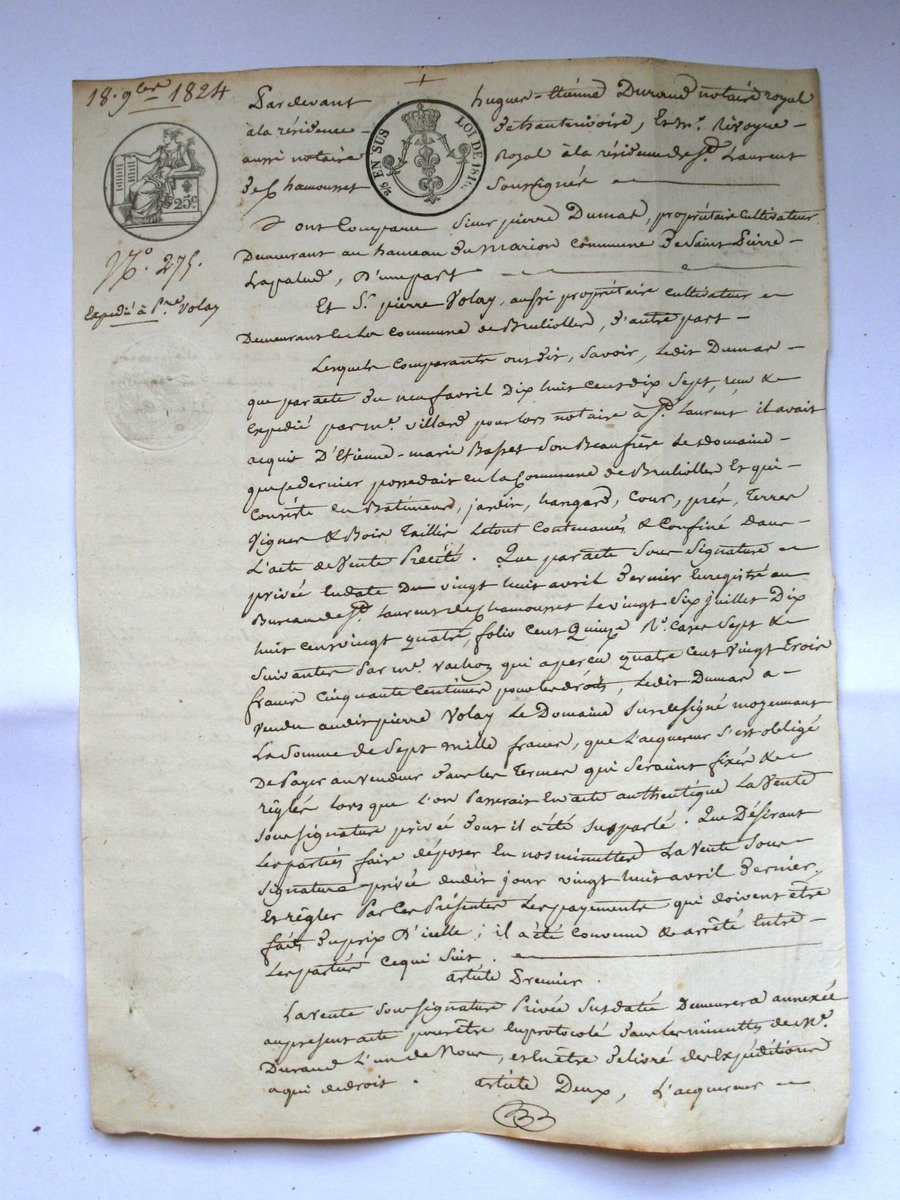 18. 9bre 1824
Pardevant hugues-Etienne Durand notaire royal
à la résidence de hauterivoire, Et Me. Rivoyre
aussi notaire Royal à la résidence de St. Laurent
de Chamousset soussignés
25 EN SUS LOI DE 1816
25c
No. 275.
Expedié à Pre Volay
Ont Comparu Sieur pierre Dumas, propriétaire cultivateur
Demeurant au hameau du Marion commune de Saint Pierre
Lapalud, D'une part
Et Sr. pierre Volay, aussi propriétaire cultivateur
Demeurant commune de Brulioller, d'autre part
Lesquels Comparants ont dit, Savoir, ledit Dumas
que par acte du neuf avril Dix huit Cent dix Sept, reçu &
Expédié par Me. Villard pour lors notaire à St. Laurent il avait
acquis D'Etienne-marie Basset son Beaufrère Le domaine
que ce dernier possedait en la Commune de Brulioller Et qui
Consiste en Bâtiments, jardin, hangard, Cour, prés, Terres
Vignes & Bois Taillis Le tout Contenancés & Confiné Dans
L'acte de Vente Précité. Que par acte Sous Signature
privée En date Du vingt huit avril dernier Enregistré au
Bureau de St. Laurent de Chamousset Le vingt Six juillet Dix
huit cent vingt quatre, folio Cent Quinze Ro. Cases Sept &
Suivantes Par Mr. Vachon qui a perçu quatre Cent Vingt Trois
francs Cinquante Centimes pour les droits, Ledit Dumas a
Vendu audit pierre Volay Le Domaine Susdesigné moyennant
La Somme de Sept mille francs, que L'acquereur s'est obligé
De Payer au vendeur dans les Termes qui Seraient fixés &
réglés lors que L'on Passerait En acte authentique La Vente
sous signature privée dont il a été sus parlé. Que Désirant
Les parties faire déposer En nos minutes La Vente Sous
Signature privée dudit jour vingt huit avril dernier,
Et régler Par Ces Présentes Les payements qui doivent être
faits du prix D'icelle; il a été convenu & arrêté Entre
Les parties ce qui Suit.
article Premier.
La vente Sous Signature Privée Susdatée Demeurera annexée
au présent acte pour être Enprotocolé dans les minutes de Me.
Durand L'un de Nous, et en être délivré des Expéditions
a qui de droit. article Deux, L'acquereur